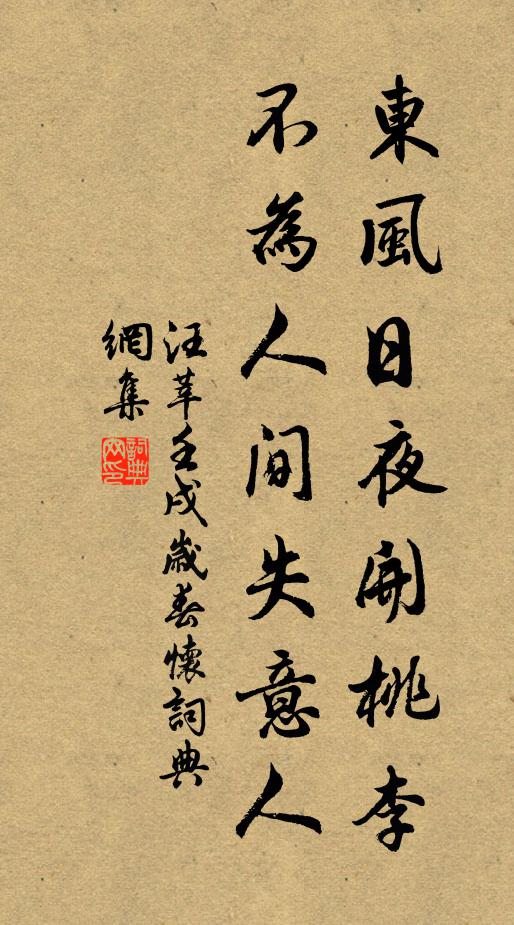 東風日夜開桃李
不為人間失意人
汪莘壬戌歲春懷詞典
網集
詞典網印